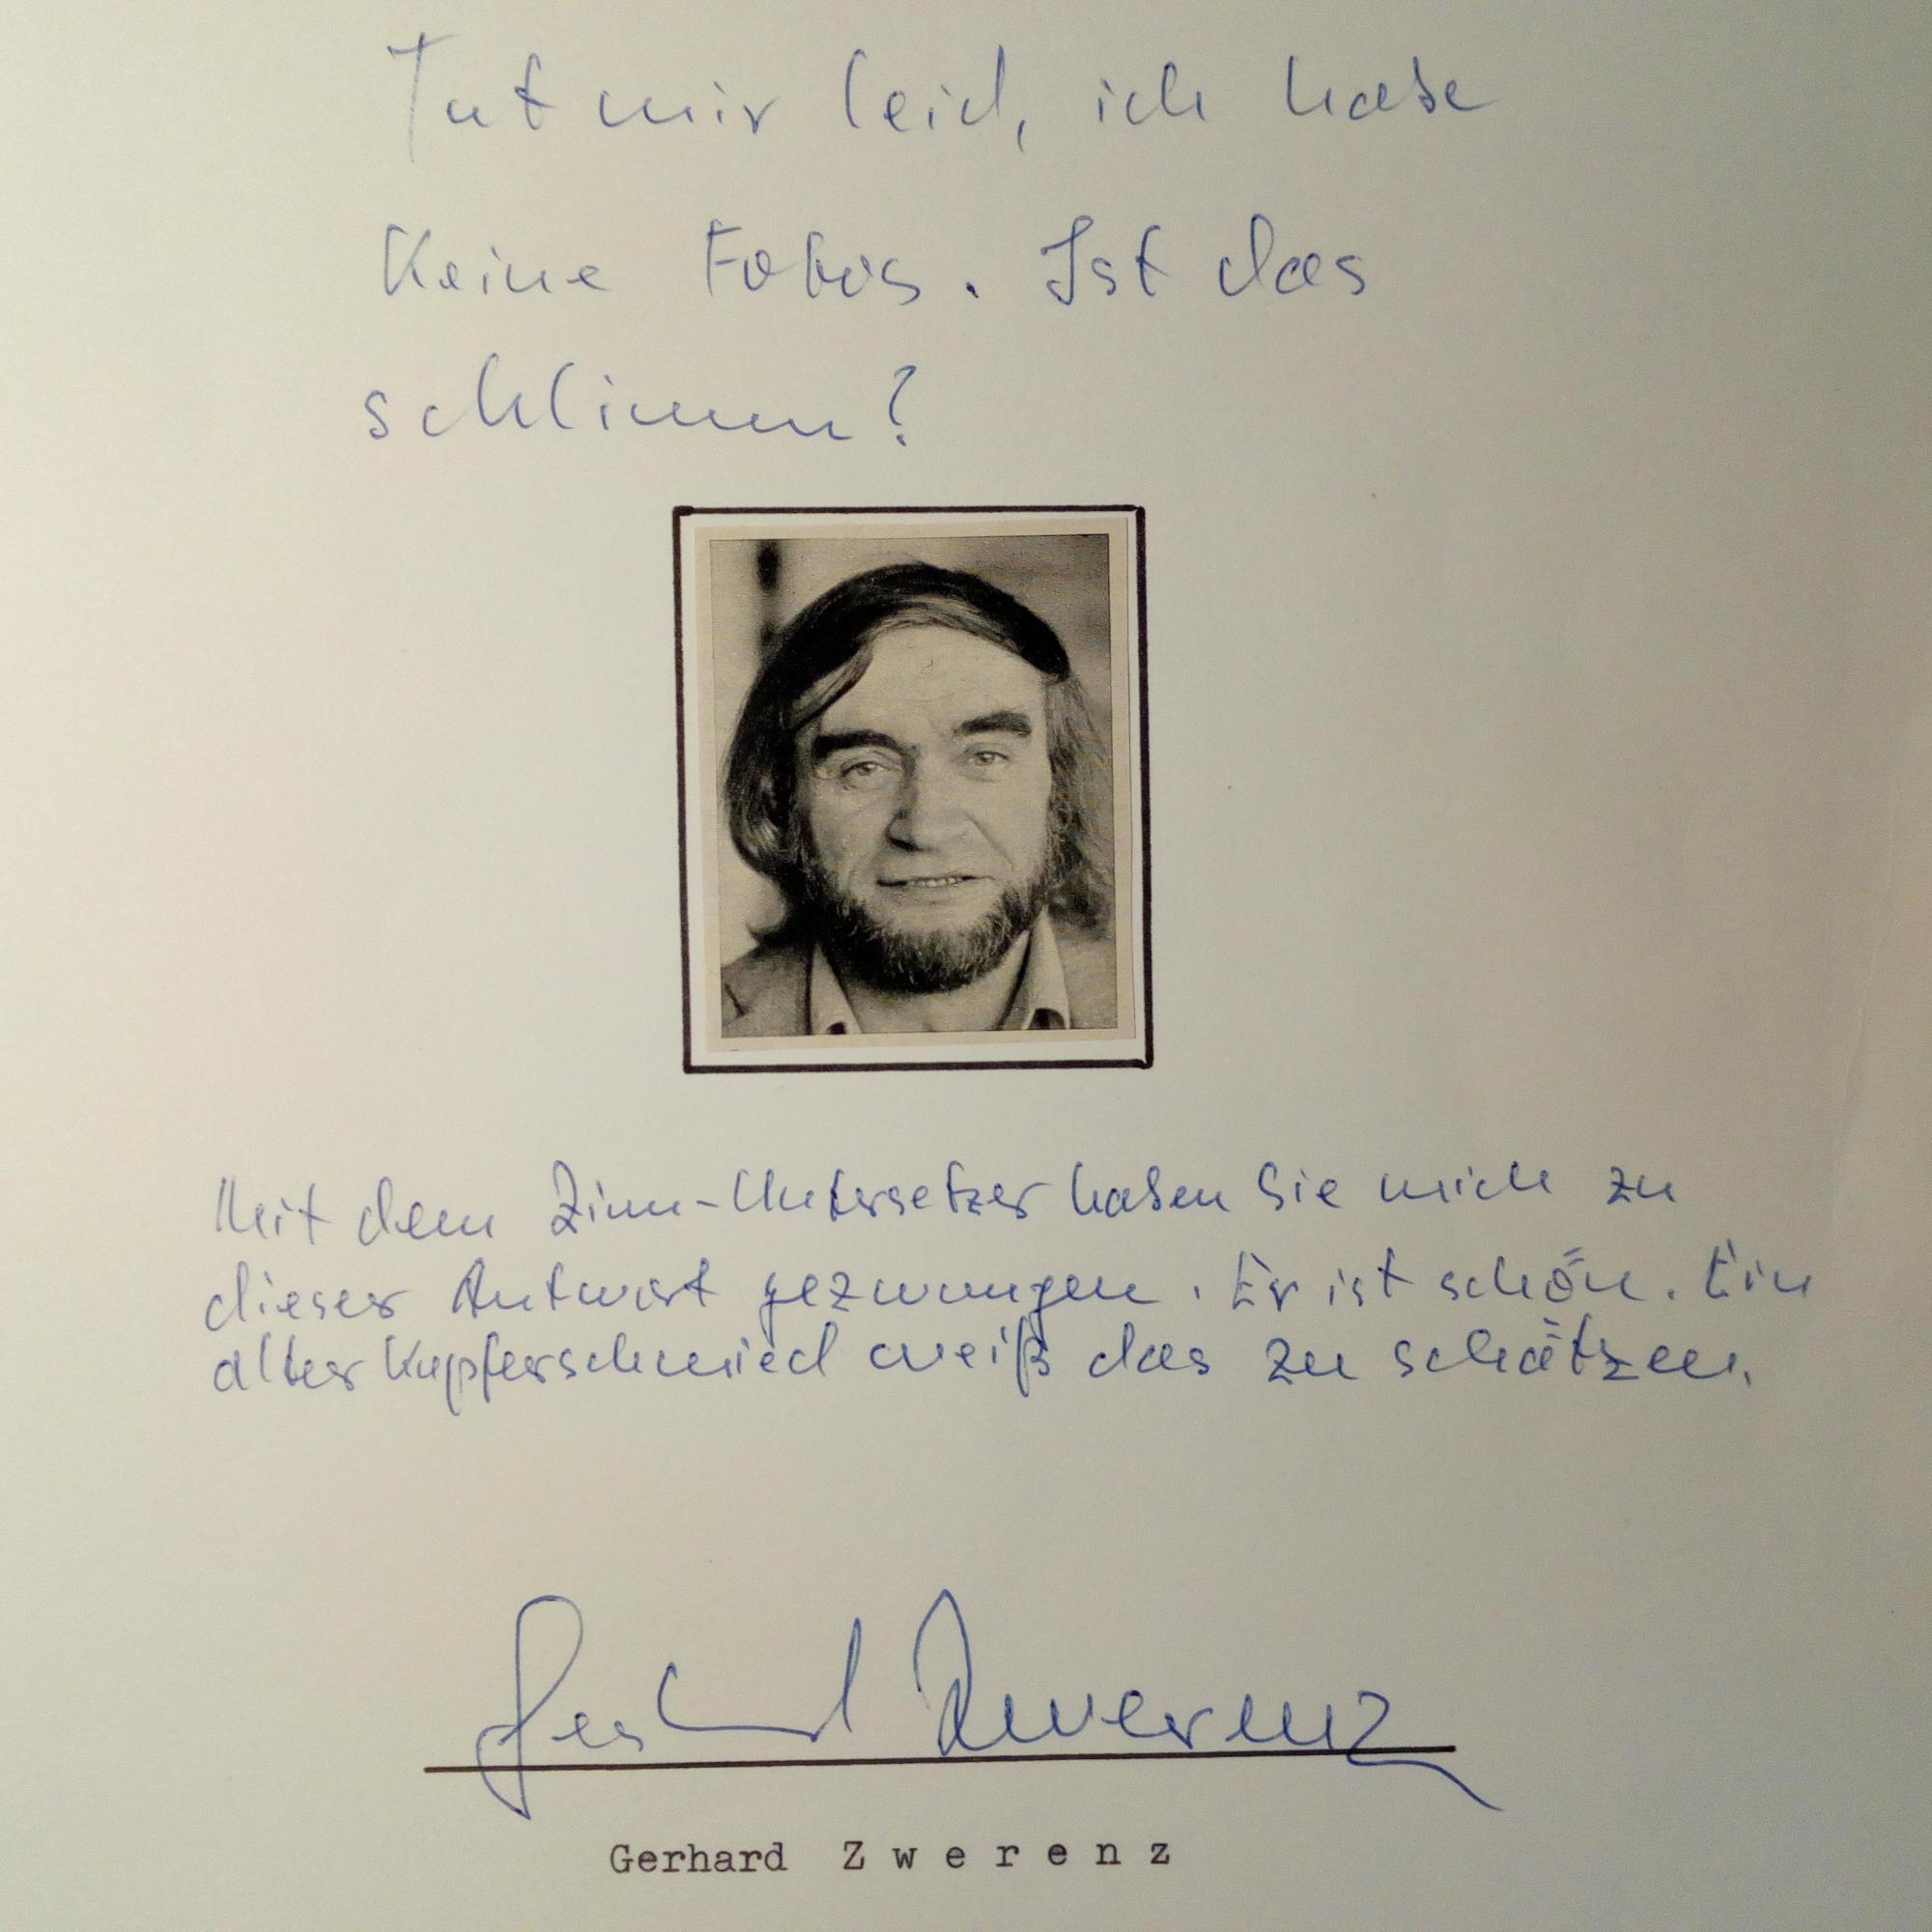 Tut mir leid, ich habe
keine Fotos. Ist das
schlimm?
Mit dem Zinn-Untersetzer haben Sie mich zu
dieser Antwort gezwungen. Er ist schön. Ein
alter Kupferschmied weiß das zu schätzen.
Gerhard Zwerenz
Gerhard Z w e r e n z